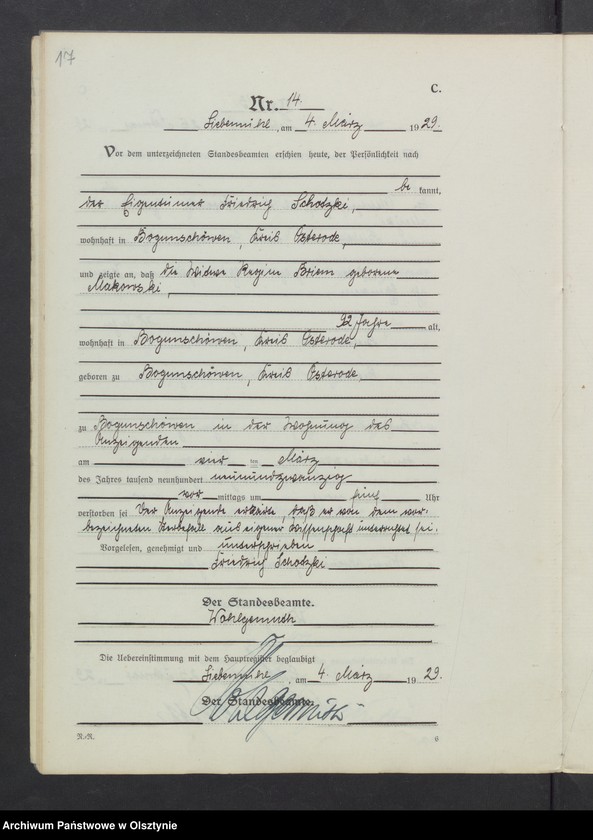 17
C.
Nr. 14.
Liebemühl, am 4. März 1929.
Vor dem unterzeichneten Standesbeamten erschien heute, der Persönlichkeit nach
be kannt,
der Eigentümer Friedrich Schodzki,
wohnhaft in Bogunschöwen, Kreis Osterode,
und zeigte an, daß die Witwe Regine Briem geborene
Makowski,
92 Jahre alt,
wohnhaft in Bogunschöwen, Kreis Osterode,
geboren zu Bogunschöwen, Kreis Osterode,
zu Bogunschöwen in der Wohnung des
Anzeigenden
am vier ten März
des Jahres tausend neunhundert neunundzwanzig
vor mittags um fünf Uhr
verstorben sei Der Anzeigende erklärte, daß er von dem vor-
bezeichneten Sterbefall aus eigener Wissenschaft unterrichtet sei.
Vorgelesen, genehmigt und unterschrieben
Friedrich Schodzki
Der Standesbeamte.
Wohlgemuth
Die Uebereinstimmung mit dem Hauptregister beglaubigt
Liebemühl, am 4. März 1929.
Der Standesbeamte.
Wohlgemuth
R.-R. 6
Archiwum Państwowe w Olsztynie